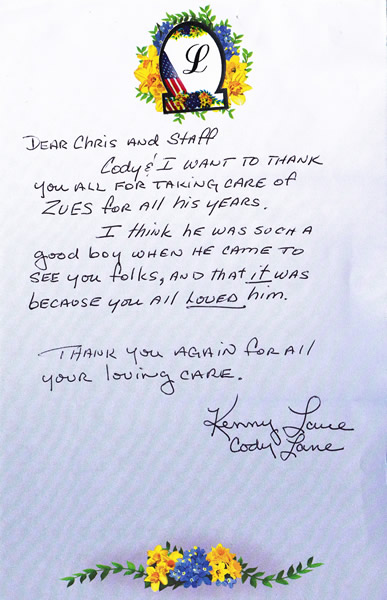 L
Dear Chris and Staff
Cody & I want to thank
you all for taking care of
Zues for all his years.
I think he was such a
good boy when he came to
see you folks, and that it was
because you all loved him.
Thank you again for all
your loving care.
Kenny Lane
Cody Lane